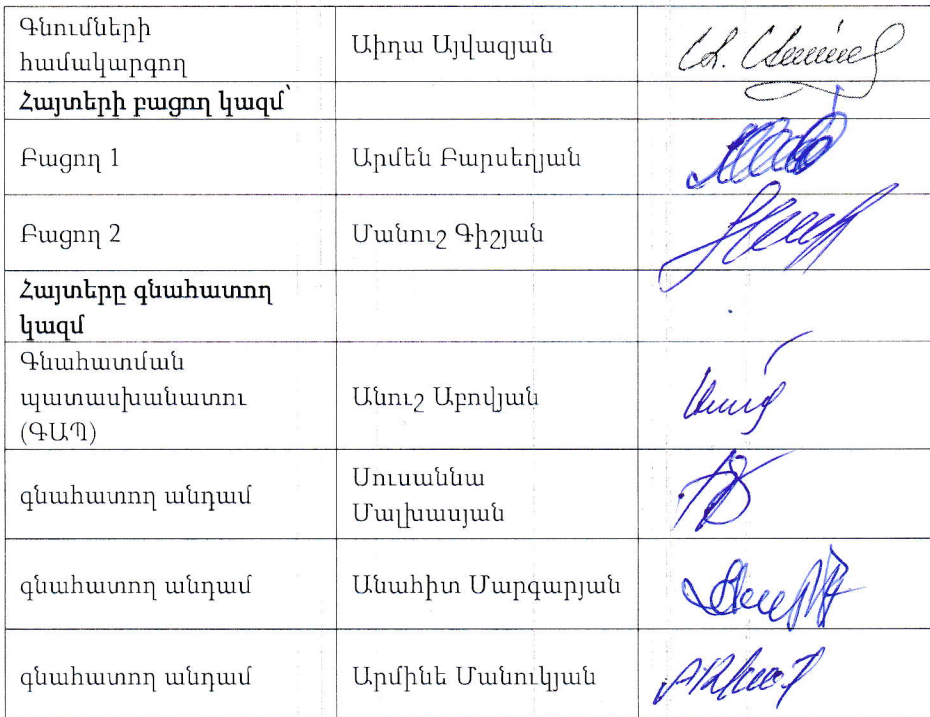 Գնումների
համակարգող
Աիդա Այվազյան
Հայտերի բացող կազմ՝
Բացող 1
Արմեն Բարսեղյան
Բացող 2
Մանուշ Գիշյան
Հայտերը գնահատող
կազմ
Գնահատման
պատասխանատու
(ԳԱՊ)
Անուշ Աբովյան
գնահատող անդամ
Սուսաննա
Մալխասյան
գնահատող անդամ
Անահիտ Մարգարյան
գնահատող անդամ
Արմինե Մանուկյան